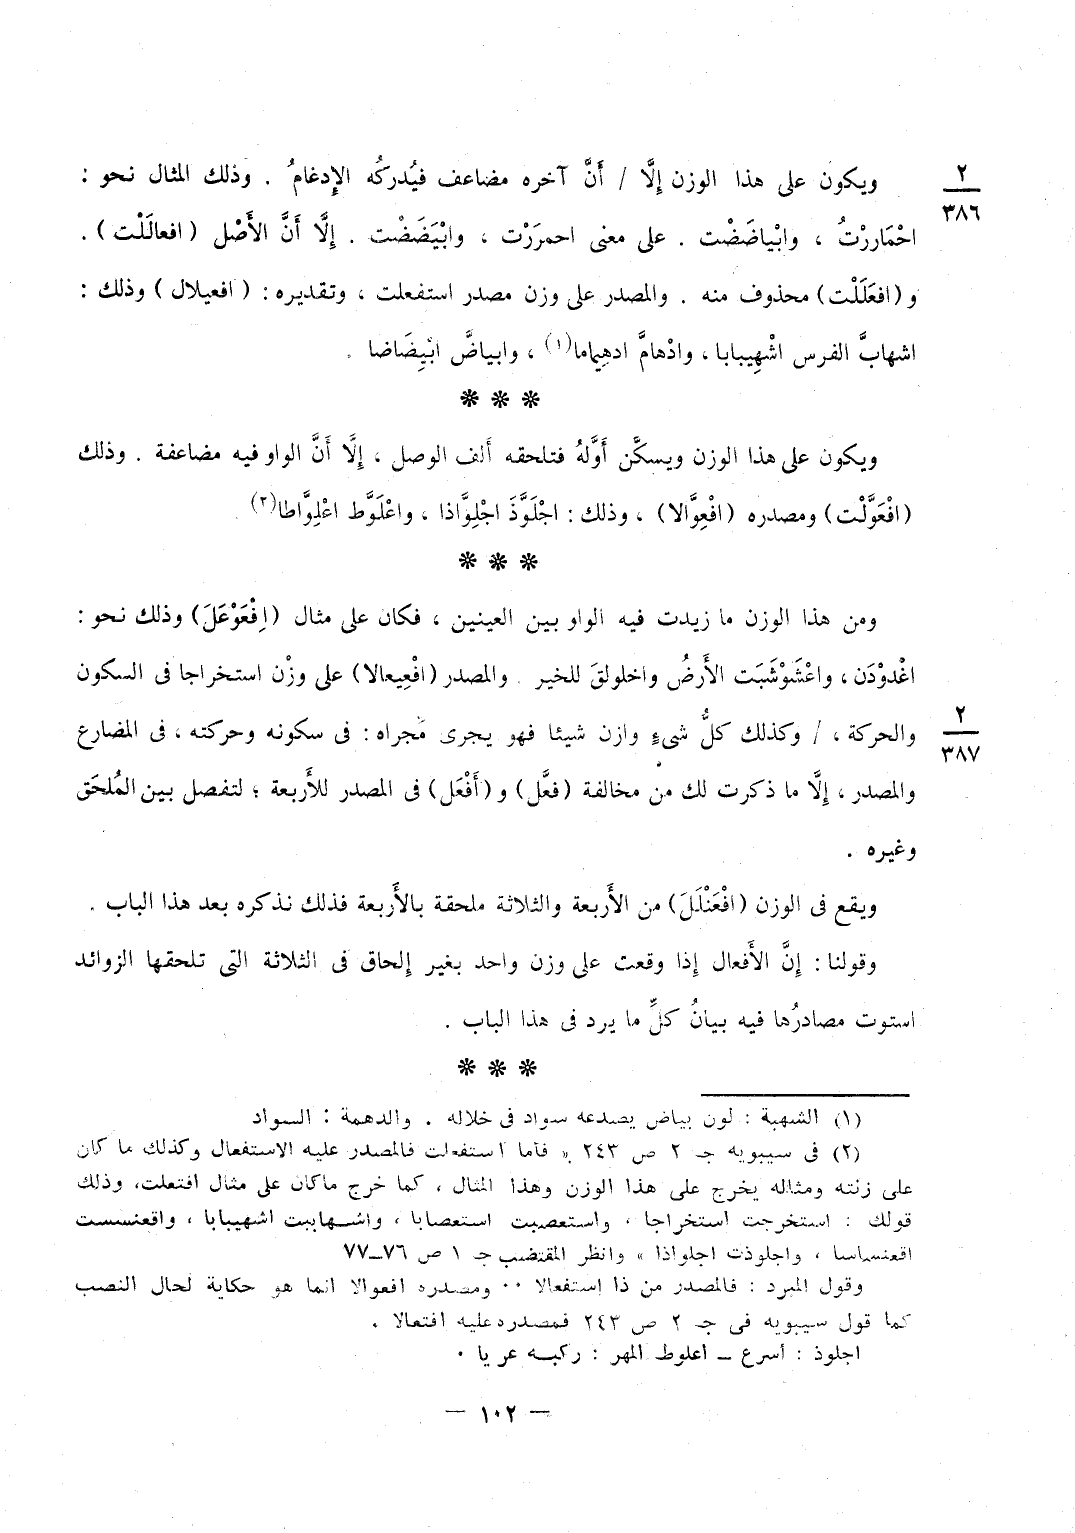 ويكون على هذا الوزن إلَّا / أَنَّ آخره مضاعف فيُدركُه الإدغامُ . وذلك المثال نحو :
٢
٣٨٦
احْمَاررْتُ ، وابْياضَضْت . على معنى احمررْت ، وابْيَضَضْت . إلَّا أَنَّ الأَصْل ( افعالَلْت ) .
و (افعَلَلْت) محذوف منه . والمصدر على وزن مصدر استفعلت ، وتقديره : ( افعيلال ) وذلك :
اشهابَّ الفرس اشْهِيبابا ، وادْهامَّ ادهِيماما(١) ، وابياضَّ ابْيِضَاضا .
❊ ❊ ❊
ويكون على هذا الوزن ويسكَّن أَوَّلهُ فتلحقه ألف الوصل ، إلَّا أَنَّ الواو فيه مضاعفة . وذلك
(افْعَوَّلْت) ومصدره (افْعِوَّالا) ، وذلك : اجْلَوَّذَ اجْلِوَّاذا ، واعْلَوَّط اعْلِوَّاطا(٢) .
❊ ❊ ❊
ومن هذا الوزن ما زيدت فيه الواو بين العينين ، فكان على مثال (اِفْعَوْعَلَ) وذلك نحو :
اغْدودْن ، واعْشَوْشَبَت الأَرضُ واخلولقَ للخير . والمصدر (افْعِيعالا) على وزْن استخراجا فى السكون
والحركة ، / وكذلك كلُّ شىءٍ وازن شيئا فهو يجرى مَجراه : فى سكونه وحركته ، فى المضارع
٢
٣٨٧
والمصدر ، إلَّا ما ذكرت لك من مخالفة (فعَّل) و (أَفْعَل) فى المصدر للأَربعة ؛ لتفصل بين المُلحَق
وغيره .
ويقع فى الوزن (افْعَنْلَلَ) من الأَربعة والثلاثة ملحقة بالأَربعة فذلك نذكره بعد هذا الباب .
وقولنا : إنَّ الأَفعال إذا وقعت على وزن واحد بغير إلحاق فى الثلاثة التى تلحقها الزوائد
استوت مصادرُها فيه بيانُ كلِّ ما يرد فى هذا الباب .
❊ ❊ ❊
(١) الشهبة : لون بياض يصدعه سواد فى خلاله . والدهمة : السواد
(٢) فى سيبويه جـ ٢ ص ٢٤٣ « فأما استفعلت فالمصدر عليه الاستفعال وكذلك ما كان
على زنته ومثاله يخرج على هذا الوزن وهذا المثال ، كما خرج ماكان على مثال افتعلت، وذلك
قولك : استخرجت استخراجا ، واستعصبت استعصابا ، واشهاببت اشهيبابا ، واقعنسست
اقعنساسا ، واجلوذت اجلواذا » وانظر المقتضب جـ ١ ص ٧٦ــ٧٧
وقول المبرد : فالمصدر من ذا استفعالا ٠٠ ومصدره افعوالا انما هو حكاية لحال النصب
كما قول سيبويه فى جـ ٢ ص ٢٤٣ فمصدره عليه افتعالا .
اجلوذ : أسرع ــ اعلوط المهر : ركبه عريا ٠
— ١٠٢ —